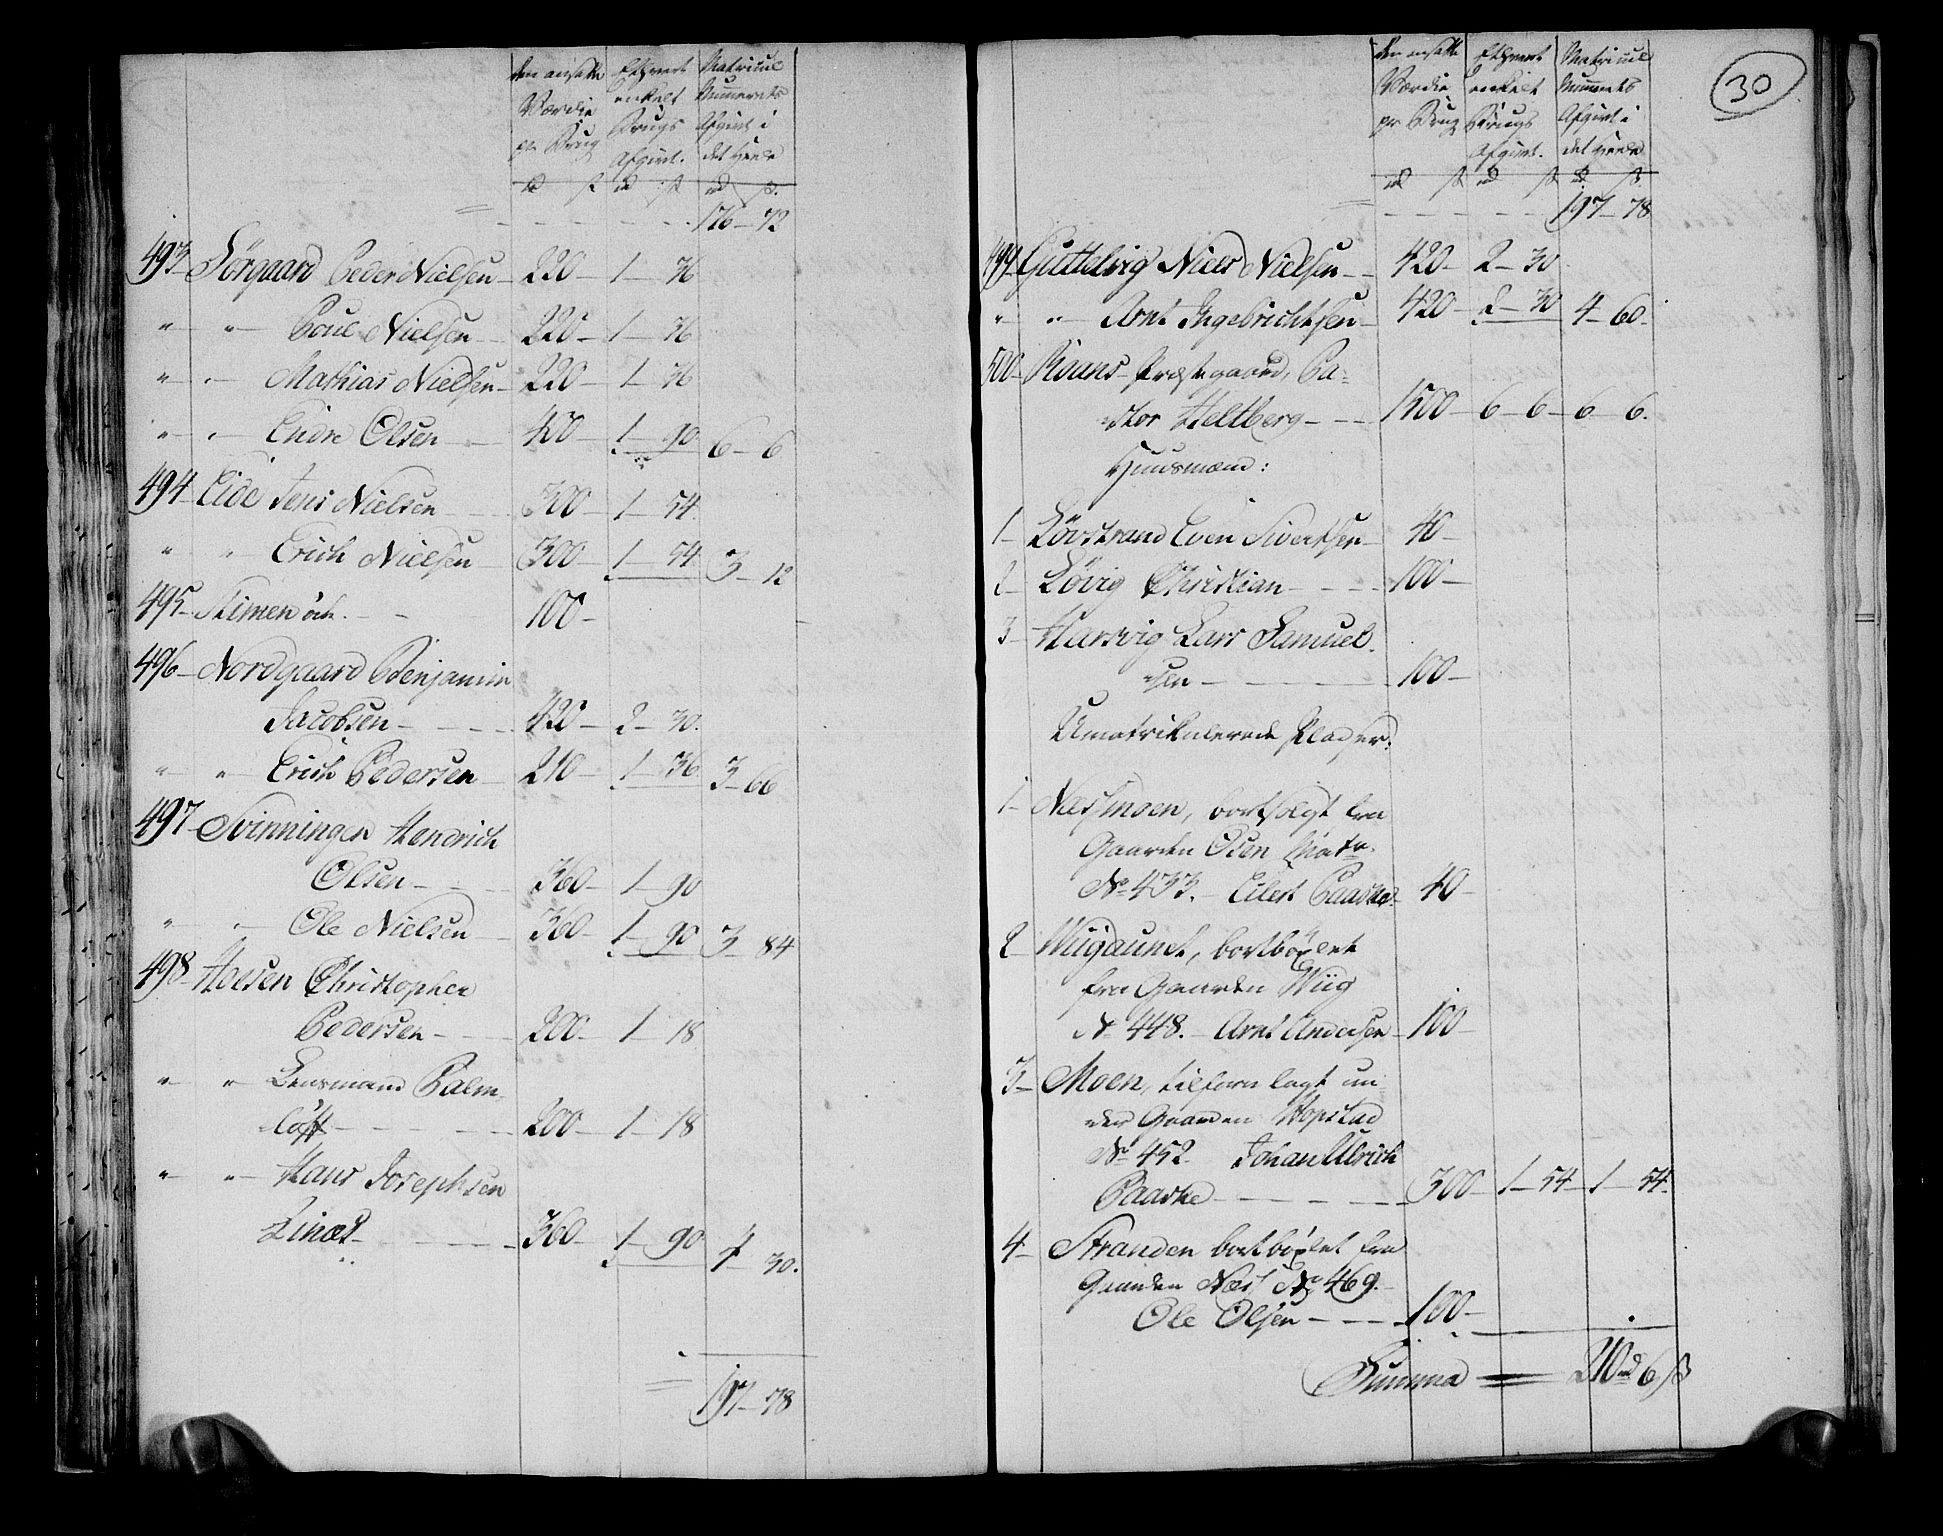 den ansatte Ethvert Matricul
Værdie enkelt Nummerets
pr Brug Brugs Afgivt i
Afgivt. det heele
rd ß rd ß rd ß
176 - 72
493 - Sörgaard Peder Nielsen - 220 - 1 - 36
" " - Poul Nielsen - 220 - 1 - 36
" " - Mathias Nielsen - 220 - 1 - 36
" " - Endre Olsen - 400 - 1 - 90 6 - 6
494 - Eide Jens Nielsen - 300 - 1 - 54.
" " Erich Nielsen - 300 - 1 - 54 3 - 12
495 - Stimen öde. - - 100 -
496 - Nordgaard Benjamin
Jacobsen - - - - 420 - 2 - 30.
" " Erich Pedersen - 210 - 1 - 36 3 - 66
497 - Svinningen Hendrich
Olsen - - - 360 - 1 - 90
" " Ole Nielsen - 360 - 1 - 90 3 - 84
498 - Holsen Christopher
Pedersen - - - 200 - 1 - 18
" " Lensmand Palm-
löff - - - - - 200 - 1 - 18
" " - Hans Josephsen
Linæs - - - - 360 - 1 - 90 4 30.
197 - 78
30
den ansatte Ethvert Matricul
Værdie enkelt Nummerets
pr Brug Brugs Afgivt i
Afgivt. det heele
rd ß rd ß rd ß
197 - 78
499 - Guttelvig Niels Nielsen - - 420 - 2 - 30
" " - Arnt Ingebrichtsen - 420 - 2 - 30 4 - 60.
500 - Roans Præstegaard, Pa-
stor Heltberg - - - 1500 - 6 - 6 - 6 6.
Huusmænd:
1 - Lövstrand Even Sivertsen - 40 -
2 - Lövig Christian - - - - 100 -
3 - Harsvig Lars Samuel-
sen - - - - - 100 -
Umatrikulerede Pladser:
1 - Næssmoen, bortsolgt fra
Gaarden Osen Matr.
No 433. - Eilert Paaske - 40 -
2 - Wiigaunet, bortböxlet
fra Gaarden Wiig
No 448. - Arnt Andersen - 100 -
3 - Moen, tilforn lagt un-
der Gaarden Hopstad
No 452. Johan Ulrich
Paaske - - - - - 300 - 1 - 54 - 1 - 54.
4 - Stranden bortböxlet fra
Gaarden Næs No 469. -
Ole Olsen - - - - 100 -
Summa = 210 rd 6 ß